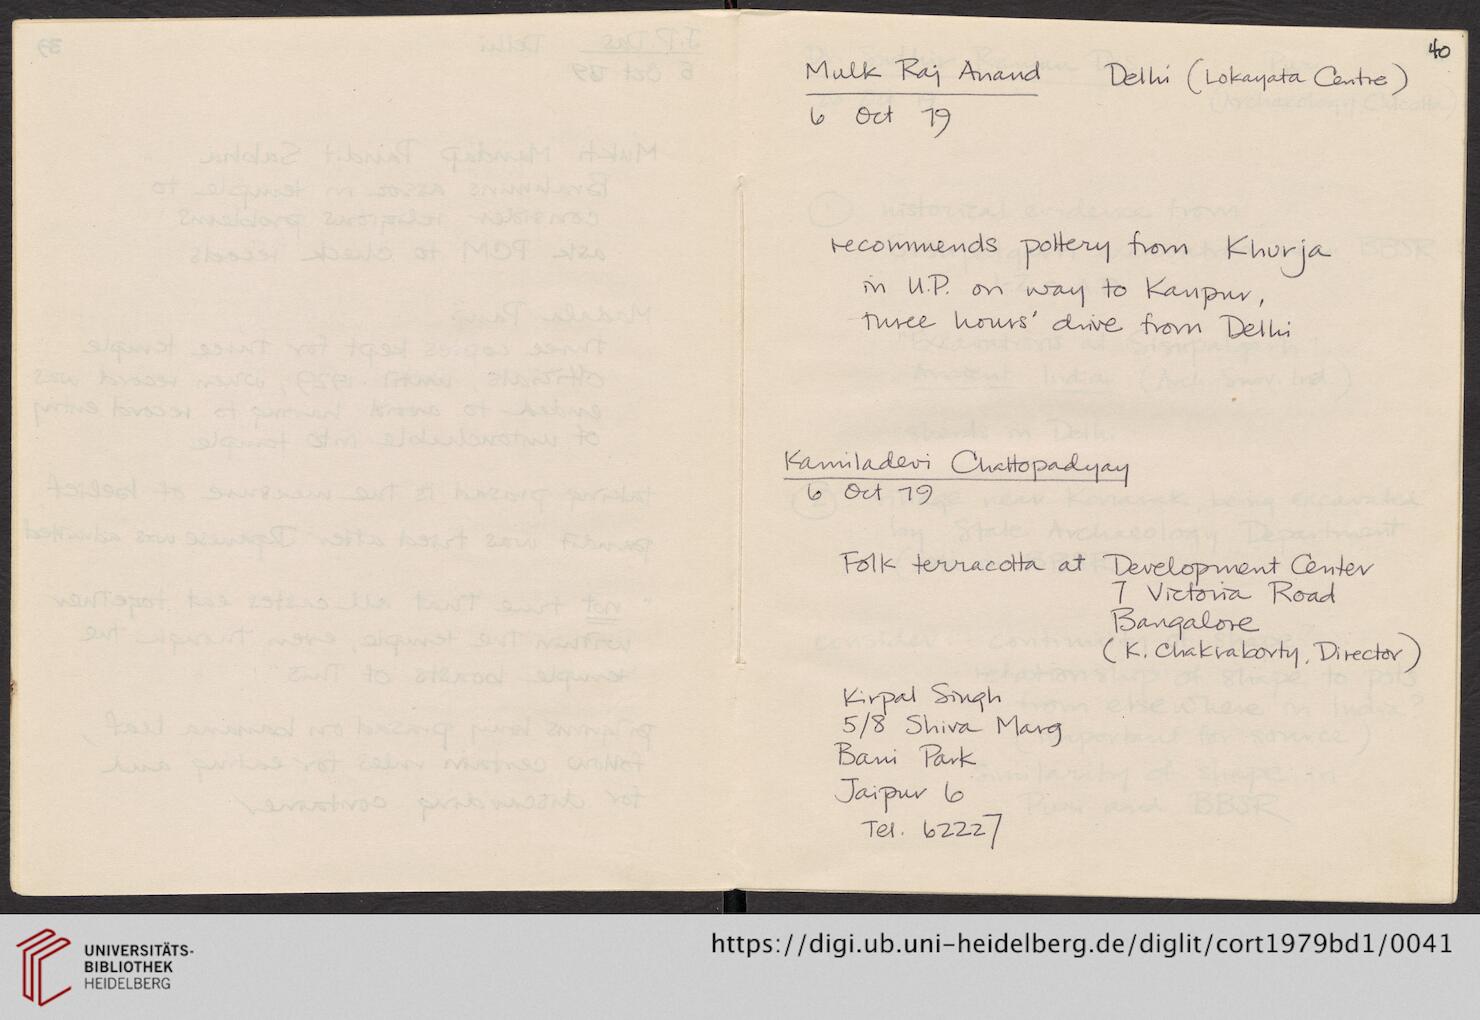 40
Mulk Raj Anand Delhi (Lokayata Centre)
6 Oct 79
recommends pottery from Khurja
in U.P. on way to Kanpur,
three hours' drive from Delhi
Kamiladevi Chattopadyay
6 Oct 79
Folk terracotta at Development Center
7 Victoria Road
Bangalore
(K. Chakraborty, Director)
Kirpal Singh
5/8 Shiva Marg
Bani Park
Jaipur 6
Tel. 62227
UNIVERSITÄTS-
BIBLIOTHEK
HEIDELBERG
https://digi.ub.uni-heidelberg.de/diglit/cort1979bd1/0041